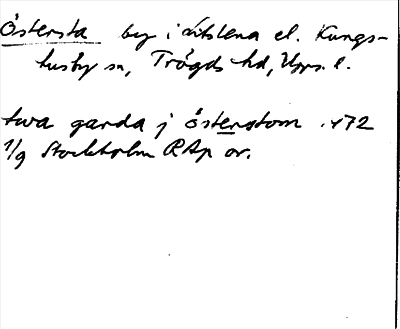 Östersta by i Litslena el. Kungs-
husby sn, Trögds hd, Upps. l.
twa garda j östenstom 1472
1/9 Stockholm RAp or.